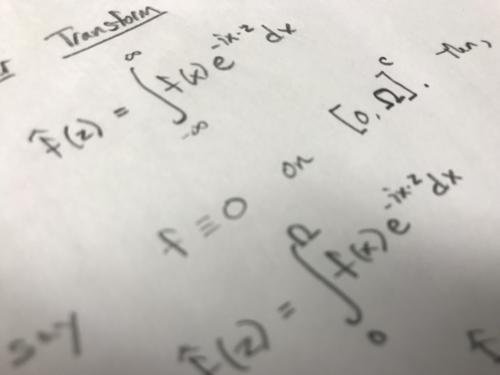 Transform
f̂(z) = ∫_{-∞}^{∞} f(x) e^{-ix·z} dx
say f ≡ 0 on [0, Ω]^c. Then,
f̂(z) = ∫_0^Ω f(x) e^{-ix·z} dx